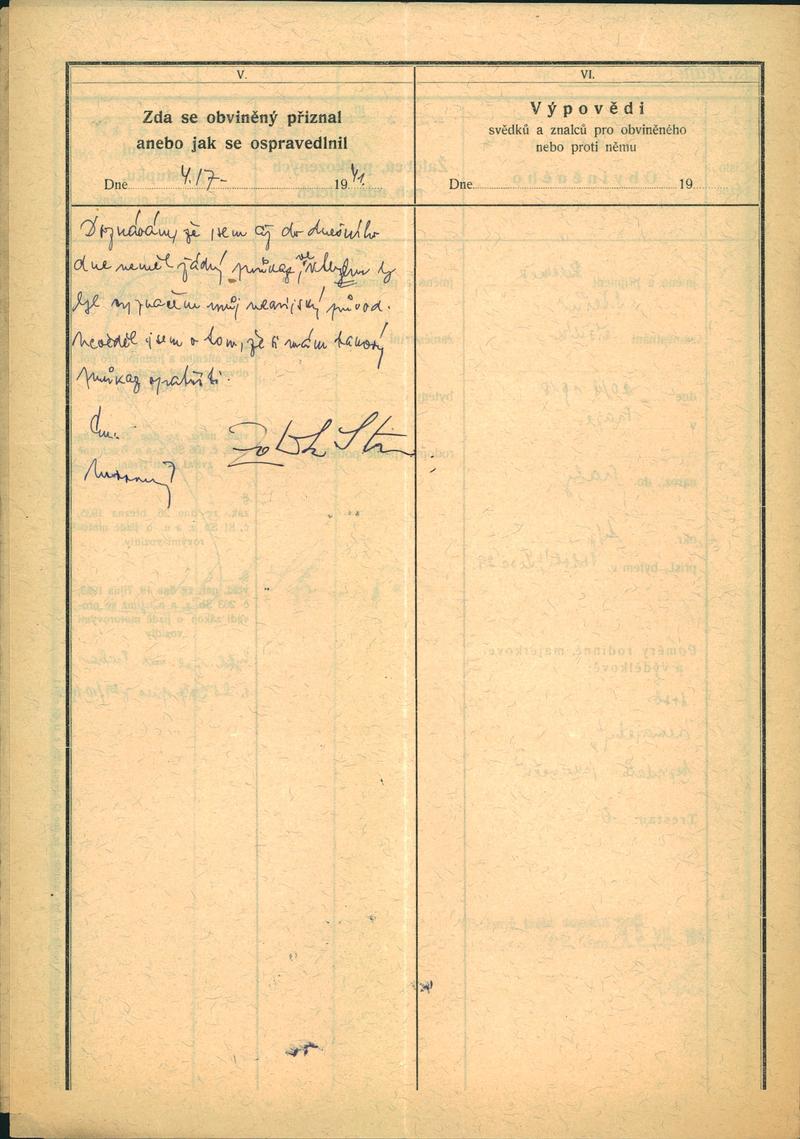 V.
Zda se obviněný přiznal
anebo jak se ospravedlnil
Dne 4.17- 1941.
Doznávám, že jsem až do dnešního
dne neměl žádný průkaz, ve kterém by
byl vyznačen můj nearijský původ.
Nevěděl jsem o tom, že si mám takový
průkaz opatřiti.
VI.
Výpovědi
svědků a znalců pro obviněného
nebo proti němu
Dne 19